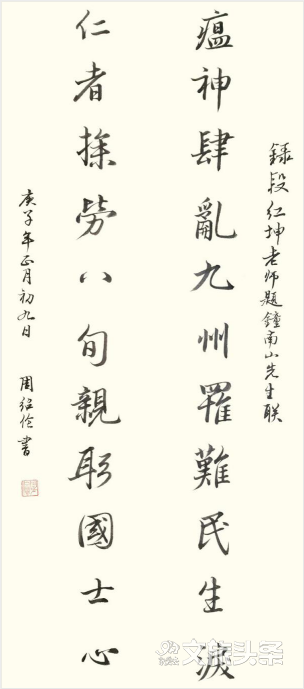 錄段坤老师題鐘南山先生联
瘟神肆亂九州罹難民生淚
仁者操勞八旬親國士心
庚子年正月初九日 周书
文旅头条